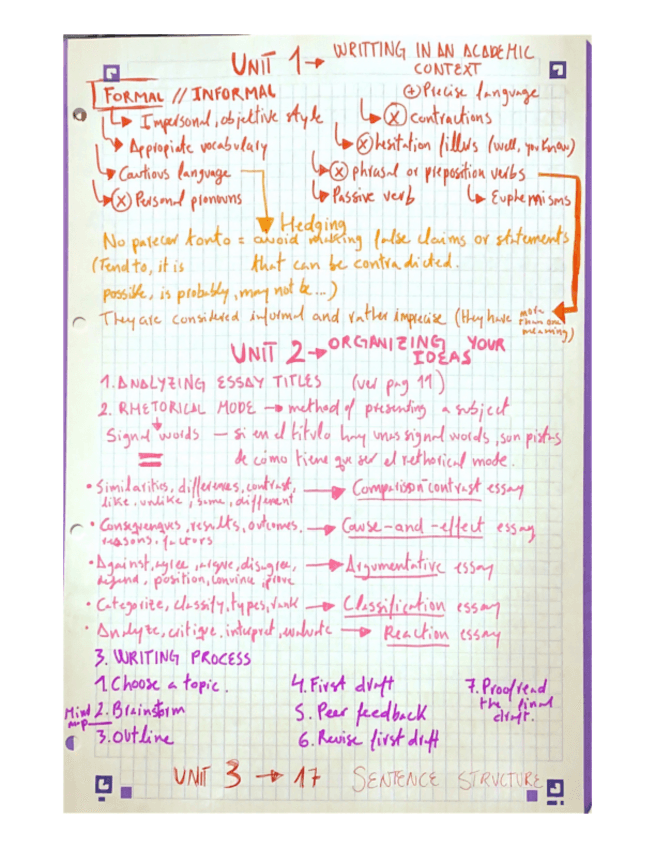 UNIT 1 → WRITTING IN AN ACADEMIC CONTEXT
FORMAL // INFORMAL
↳ Impersonal, objective style
↳ Appropiate vocabulary
↳ Cautious language
↳ ⓧ Personal pronouns
⊕ Precise language
↳ ⓧ contractions
↳ ⓧ hesitation fillers (well, you know)
↳ ⓧ phrasal or preposition verbs
↳ Passive verb
↳ Euphemisms
Hedging
No parecer tonto = avoid making false claims or statements
(Tend to, it is that can be contradicted.
possible, is probably, may not be...)
They are considered informal and rather imprecise (they have more than one meaning)
UNIT 2 → ORGANIZING YOUR IDEAS
1. ANALYZING ESSAY TITLES (ver pag 11)
2. RHETORICAL MODE → method of presenting a subject
Signal words – si en el título hay unas signal words, son pistas
= de cómo tiene que ser el rethorical mode.
• Similarities, differences, contrast, → Comparison-contrast essay
like, unlike, same, different
• Consequences, results, outcomes, → Cause-and-effect essay
reasons, factors
• Against, agree, argue, disagree, → Argumentative essay
defend, position, convince, prove
• Categorize, classify, types, rank → Classification essay
• Analyze, critique, interpret, evaluate → Reaction essay
3. WRITING PROCESS
1. Choose a topic.
Mind map 2. Brainstorm
3. Outline
4. First draft
5. Peer feedback
6. Revise first draft
7. Proofread
the final
draft.
UNIT 3 → 17 SENTENCE STRUCTURE